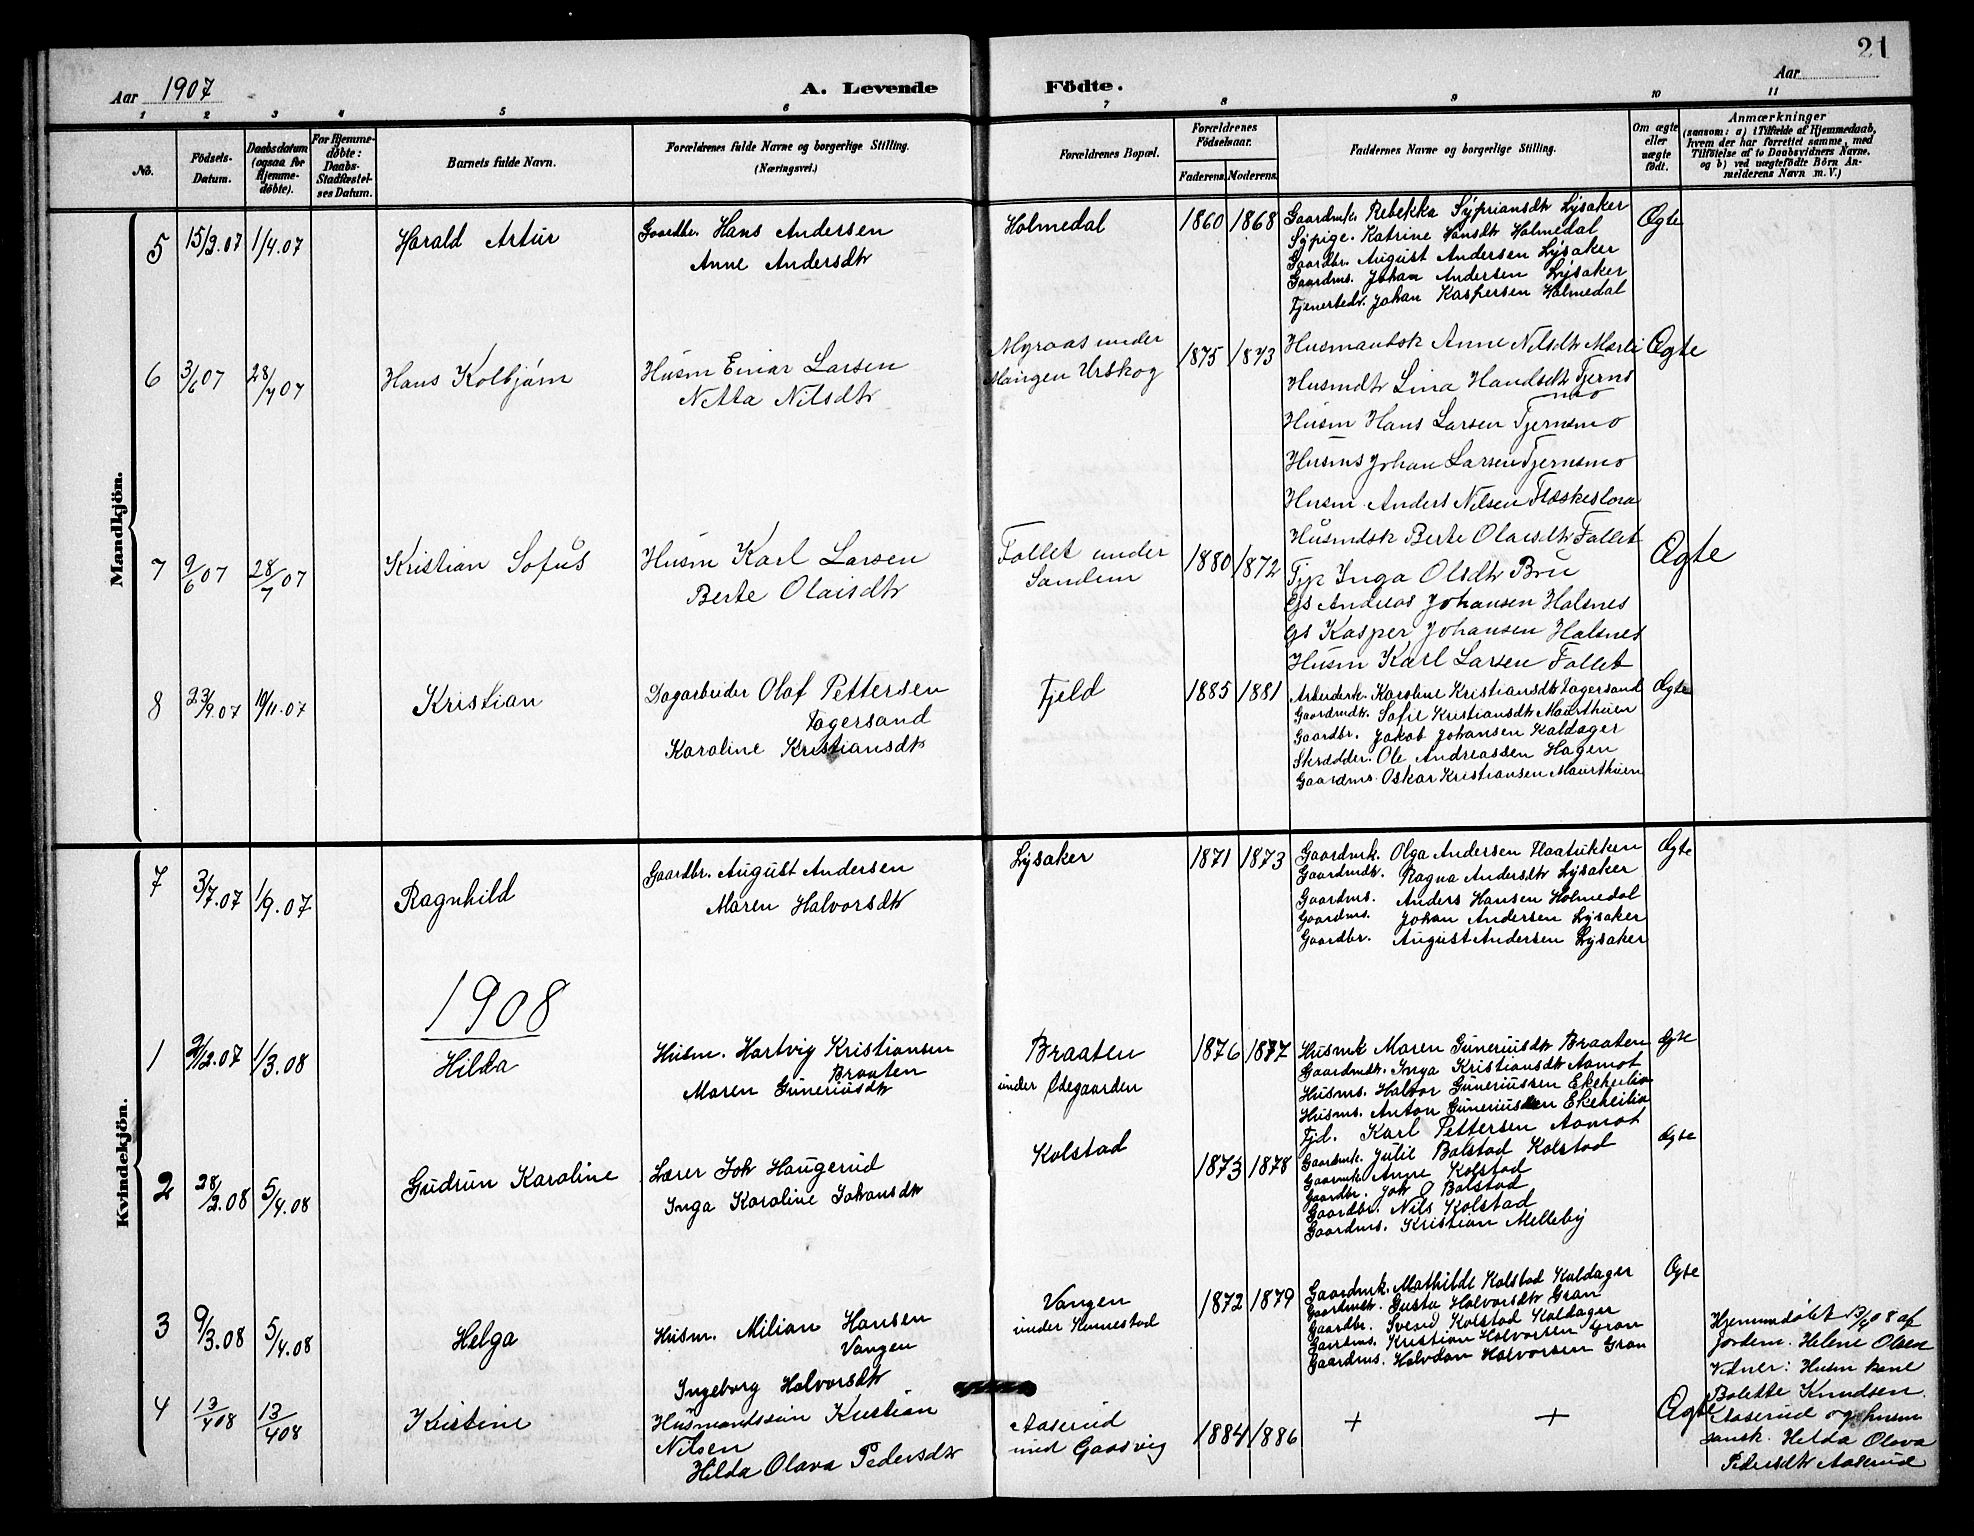 21
Aar 1907
A. Levende Födte.
Aar
1 2 3 4 5 6 7 8 9 10 11
No.
Födsels-Datum.
Daabsdatum (ogsaa for Hjemme-döbte).
For Hjemme-döbte: Daabs-Stadfæstel-ses Datum.
Barnets fulde Navn.
Forældrenes fulde Navne og borgerlige Stilling.
(Næringsvei.)
Forældrenes Bopæl.
Forældrenes Födselsaar.
Faderens. Moderens.
Faddernes Navne og borgerlige Stilling.
Om ægte eller uægte födt.
Anmærkninger
(saasom: a) i Tilfælde af Hjemmedaab,
hvem der har forrettet samme, med
Tilföielse af to Daabsvidners Navne,
og b) ved uægtefödte Börn An-
melderens Navn m. V.)
Mandkjön.
5 15/2.07 1/4.07 Harald Artur
Gaardbr. Hans Andersen
Anne Andersdtr
Holmedal
1860 1868
Gaardmk. Rebekka Sÿpriansdtr Lÿsaker
Sÿpige. Katrine Hansdtr Holmedal
Gaardbr. August Andersen Lÿsaker
Gaardms. Johan Andersen Lÿsaker
Tjenertedr. Johan Kaspersen Holmedal
Ægte
6 3/6 07 28/7 07 Hans Kolbjørn
Husm Einar Larsen
Netta Nilsdtr
Myraas under
Mangen Urskog
1875 1873
Husmandsk Anne Nilsdtr Morti
Husmdtr Lina Hansdtr Tjerns
mo
Husm Hans Larsen Tjernsmo
Husms Johan Larsen Tjernsmo
Husm Anders Nilsen Flæskeslora
Ægte
7 9/6 07 28/7 07 Kristian Sofus
Husm Karl Larsen
Berte Olaisdtr
Follet under
Sandem
1880 1872
Husmdsk Berte Olaisdtr Follet
Tjp Inga Olsdtr Bru
Gs Andreas Johansen Halsnes
Gs Kasper Johansen Halsnes
Husm Karl Larsen Follet
Ægte
8 23/9.07 10/11.07 Kristian
Dagarbeider Olaf Pettersen
Tagersand
Karoline Kristiansdtr
Fjeld
1885 1881
Arbeiderk. Karoline Kristiansdtr Tagersand
Gaardmdtr. Sofie Kristiansdtr Maurthuen
Gaardbr. Jakob Johansen Kaldager
Skrædder. Ole Andreassen Hagen
Gaardms. Oskar Kristiansen Maurthuen
Ægte
Kvindekjön.
7 3/7.07 1/9.07 Ragnhild
Gaardbr. August Andersen
Maren Halvorsdtr
Lÿsaker
1871 1873
Gaardmk. Olga Andersen Flaatukken
Gaardmdtr. Ragna Andersdtr Lÿsaker
Gaardms. Anders Hansen Holmedal
Gaardms. Johan Andersen Lÿsaker
Gaardbr. August Andersen Lÿsaker
Ægte
1908
1 2/12.07 1/3.08 Hilda
Husm. Hartvig Kristiansen
Braaten
Maren Guneriusdtr
Braaten
under Ødegaarden
1876 1877
Husmk Maren Guneriusdtr Braaten
Gaardmdtr. Inga Kristiansdtr Aamot
Husms. Halvor Guneriussen Ekeheilia
Husms. Anton Guneriussen Ekeheilia
Tjd. Karl Pettersen Aamot
Ægte
2 28/2.08 5/4.08 Gudrun Karoline
Lærer Joh Haugerud
Inga Karoline Johansdtr
Kolstad
1873 1878
Gaardmk. Julie Bolstad Kolstad
Gaardmk. Anne Kolstad
Gaardbr. Joh O Bolstad
Gaardbr. Nils Kolstad
Gaardms. Kristian Melleby
Ægte
3 9/3.08 5/4.08 Helga
Husm. Milian Hansen
Vangen
Ingeborg Halvorsdtr
Vangen
under Kinnestad
1872 1879
Gaardmk. Mathilde Kolstad Kaldager
Gaardmdtr. Gusta Halvorsdtr Gran
Gaardbr. Svend Kolstad Kaldager
Gaardms. Kristian Halvorsen Gran
Gaardms. Halvdan Halvorsen Gran
Ægte
4 13/4 08 13/4 08 Kristine
Husmandssøn Kristian
Nilsen
Hilda Olava Pedersdtr
Aaserud
und Gaasvig
1884 1886
+ +
Ægte
Hjemmedøbt 13/4 08 af
Jordem. Helene Olsen
Vidner: Husm kone
Bolette Knudsen
Aaserud og husm
dansk. Hilda Olava
Pedersdtr Aaserud